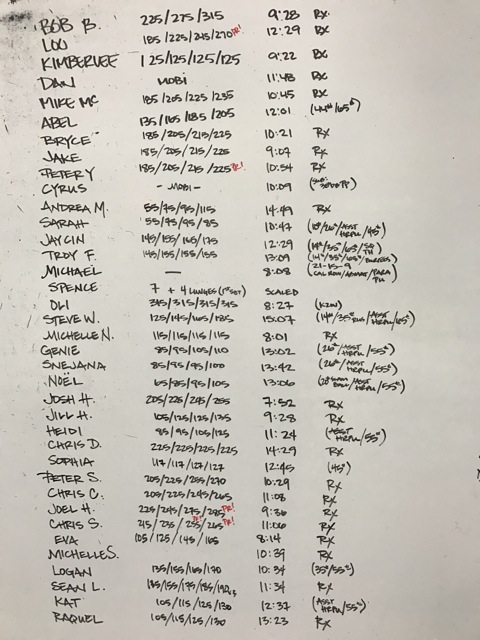 BOB B. 225/275/315 9:28 RX
LOU 185/225/245/270 PR! 12:29 RX
KIMBERLEE 125/125/125/125 9:22 RX
DAN MOBI 11:48 RX
MIKE MC 185/205/225/235 10:45 RX
ABEL 135/165/185/205 12:01
BRYCE 185/205/215/225 10:21 RX
JAKE 185/205/215/225 9:07 RX
PETER Y 185/205/215/225 PR! 10:54 RX
CYRUS - MOBI - 10:09
ANDREA M. 55/75/95/115 14:49 RX
SARAH 55/75/95/85 10:47
JAYCIN 145/155/165/175 12:29
TROY F. 145/155/155/155 13:09
MICHAEL — 8:08 (21-15-9
SPENCE 7 + 4 LUNGES (1ST SET) SCALED
OLI 345/315/315/315 8:27
STEVE W. 125/145/165/185 15:07
MICHELLE N. 115/115/115/115 8:01 RX
GENIE 85/95/105/110 13:02 (20#/ASST HRPU/55#)
SNEJANA 85/95/95/100 13:42 (20#/ASST HRPU/55#)
NOËL 65/85/95/105 13:06
JOSH H. 205/225/245/255 7:52 RX
JILL H. 105/125/125/135 9:28 RX
HEIDI 85/95/105/125 11:24 (ASST HRPU/55#)
CHRIS D. 225/225/225/225 14:29 RX
SOPHIA 117/117/127/127 12:45 (45#)
PETER S. 205/225/255/270 10:29 RX
CHRIS C. 205/225/245/265 11:08 RX
JOEL H. 225/245/275/285 PR! 9:36 RX
CHRIS S. 215/235/255/265 PR! 11:06 RX
EVA 105/125/145/165 8:14 RX
MICHELLE S. 10:39 RX
LOGAN 135/155/165/170 10:34 (35#/55#)
SEAN L. 11:34 RX
KAT 105/115/125/130 12:37 (ASST HRPU/55#)
RAQUEL 105/115/125/130 13:23 RX